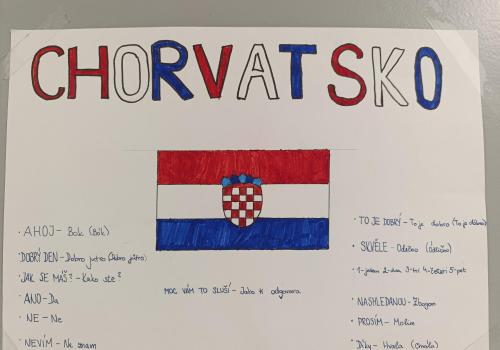 CHORVATSKO
· AHOJ - Bok (Bók)
· DOBRÝ DEN - Dobro jutro (Dobro jútro)
· JAK SE MÁŠ? - Kako ste?
· ANO - Da
· NE - Ne
· NEVÍM - Ne znam
MOC VÁM TO SLUŠÍ - Jako ti odgovara
· TO JE DOBRÝ - To je dobro (To je dóbro)
· SKVĚLE - Odlično
· 1-jedan 2-dva 3-tri 4-četiri 5-pet
· NASHLEDANOU - Zbogom
· PROSÍM - Molim
· Díky - Hvala